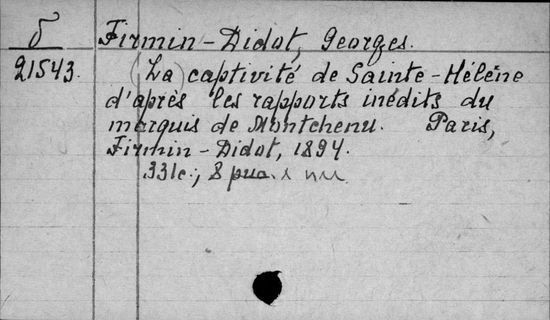 б
21543.
Firmin-Didot, Georges.
(La) captivité de Sainte-Hélène
d'après les rapports inédits du
marquis de Montchenu. Paris,
Firmin-Didot, 1894.
331c.; 8